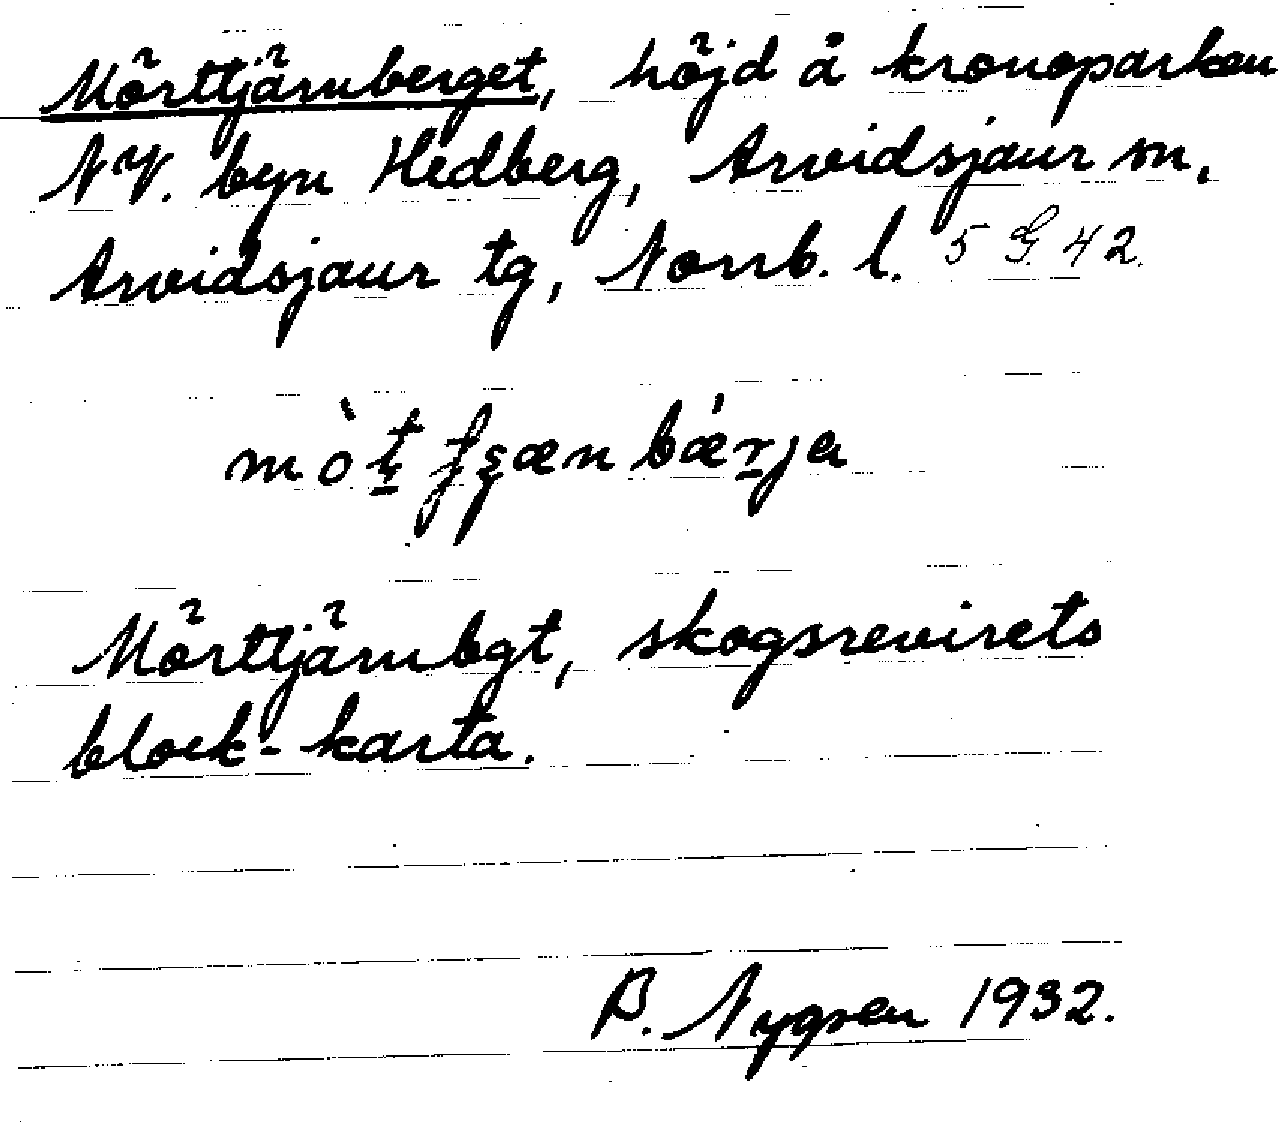 Mörttjärnberget, höjd å kronoparken
NV. byn Hedberg, Arvidsjaur sn,
Arvidsjaur tg, Norrb. l. 5 G 42.
Mörttjärnbgt, skogsrevirets
block-karta.
B. Nygren 1932.